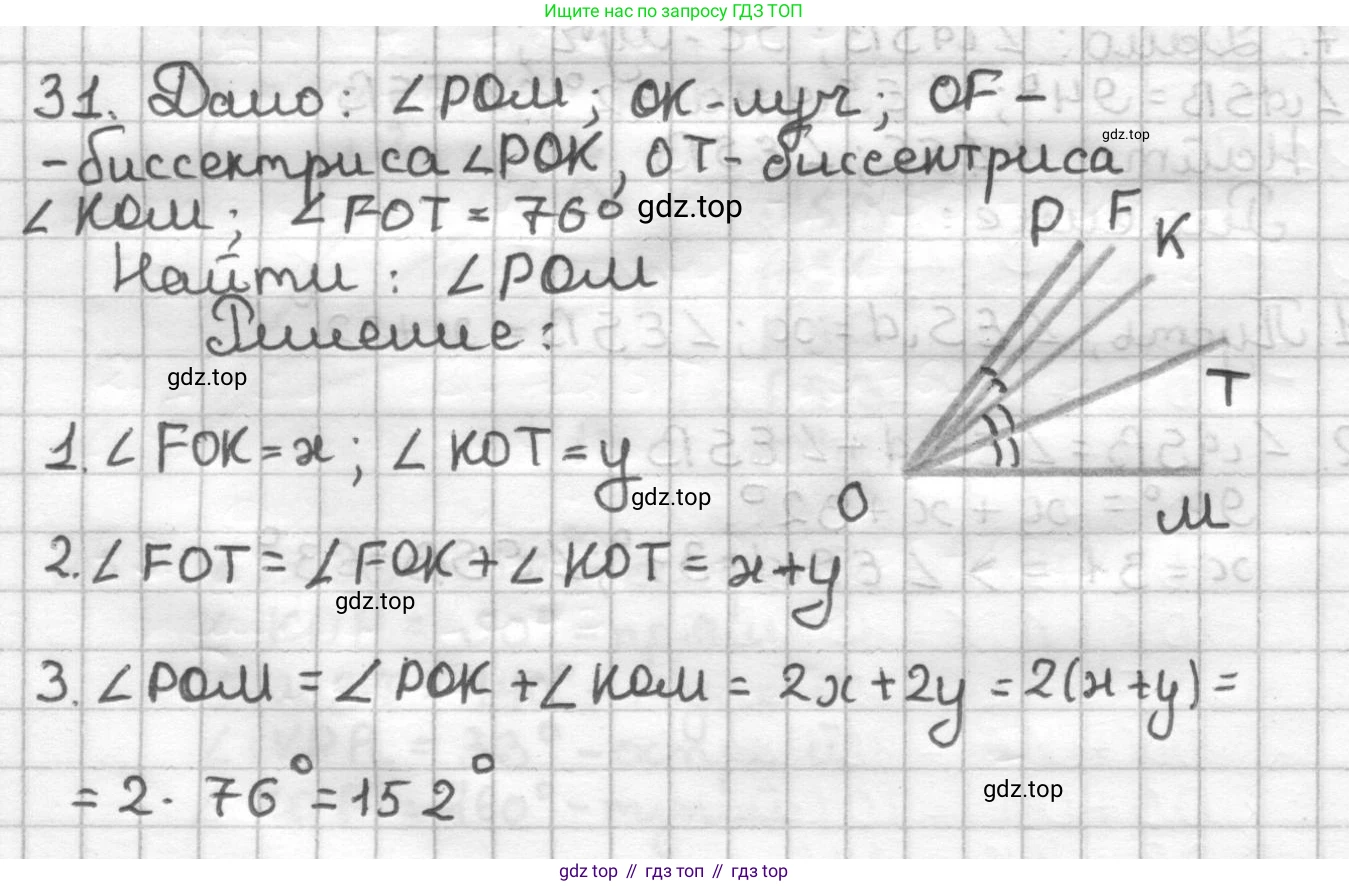 Ищите нас по запросу ГДЗ ТОП
31. Дано: ∠POM; OK - луч; OF -
- биссектриса ∠POK, OT - биссектриса
gdz.top
∠KOM; ∠FOT = 76° gdz.top
P F K
Найти: ∠POM
Решение:
gdz.top
T
1. ∠FOK = x; ∠KOT = y
gdz.top
O
M
2. ∠FOT = ∠FOK + ∠KOT = x + y
gdz.top
3. ∠POM = ∠POK + ∠KOM = 2x + 2y = 2(x + y) =
= 2 · 76° = 152°
gdz.top
gdz top // гдз топ // гдз top